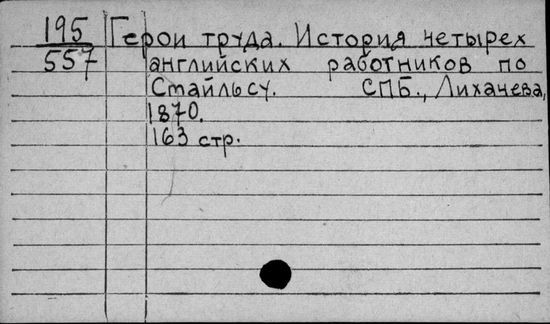 195 Герои труда. История четырех
557 английских работников по
Смайльсу. СПБ., Лихачева,
1870.
163 стр.